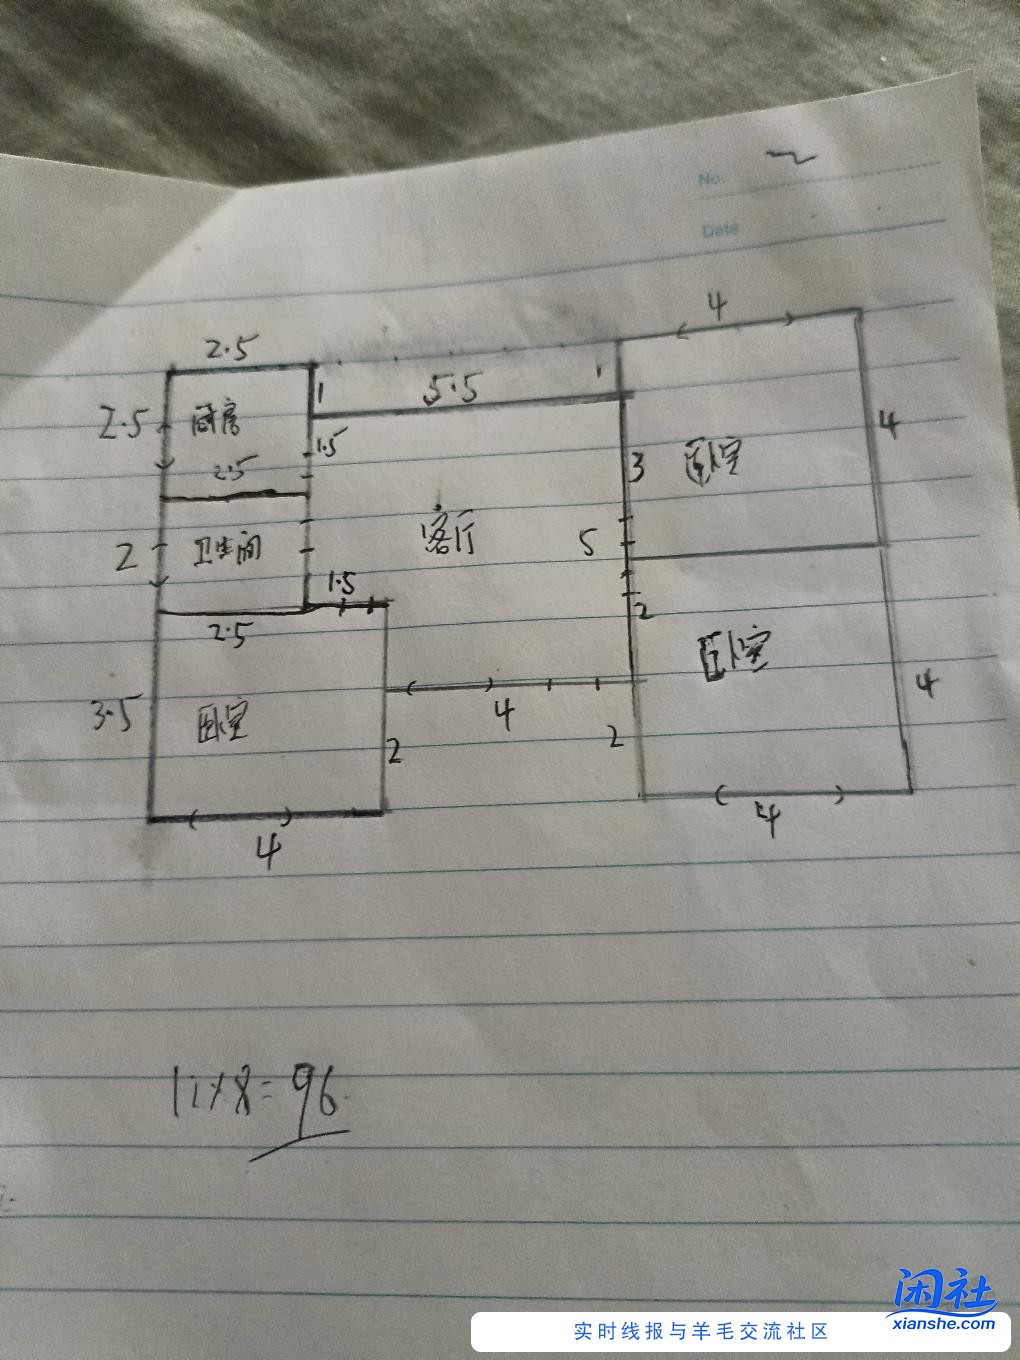 No.
Date
4
2.5
1
5.5
1
2.5
厨房
1.5
4
2.5
3
卧室
2
卫生间
客厅
5
1.5
2
2.5
卧室
4
3.5
卧室
4
2
2
4
4
11×8=96
闲社
xianshe.com
实时线报与羊毛交流社区